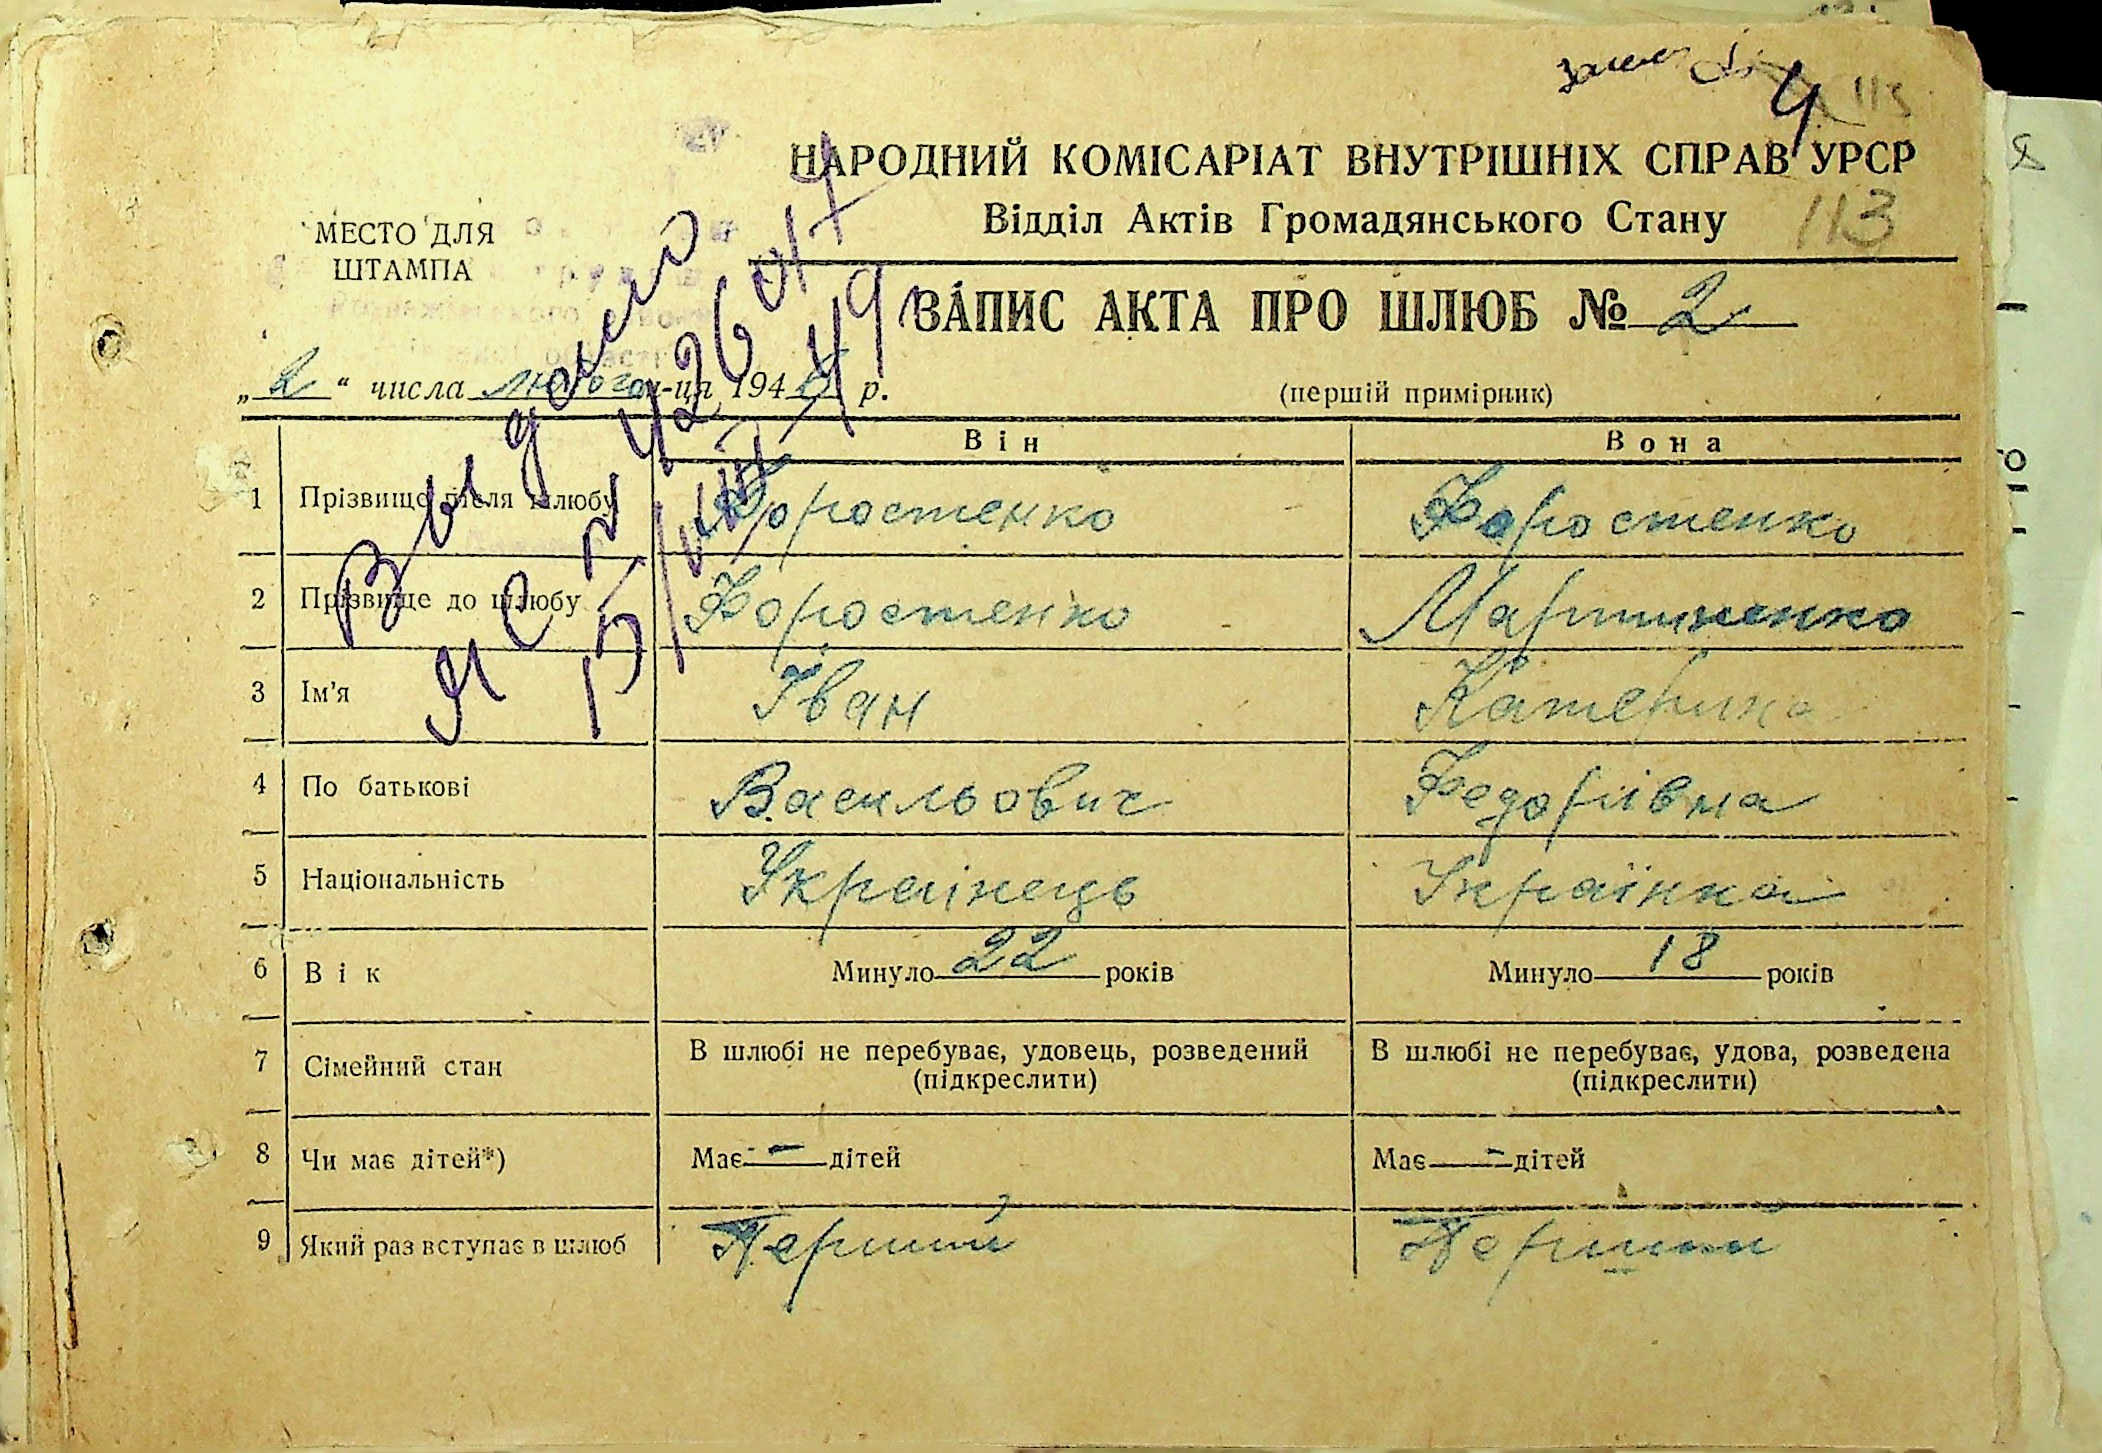 4
НАРОДНИЙ КОМІСАРІАТ ВНУТРІШНІХ СПРАВ УРСР
Відділ Актів Громадянського Стану
113
МЕСТО ДЛЯ
ШТАМПА
ЗАПИС АКТА ПРО ШЛЮБ № 2
„2“ числа лютого м-ця 194 р.
(перший примірник)
Видано
ЯС
Він Вона
1 Прізвище після шлюбу Форостенко Форостенко
2 Прізвище до шлюбу Форостенко Мартиненко
3 Ім'я Іван Катерина
4 По батькові Васильович Федорівна
5 Національність Українець Українка
6 Вік Минуло 22 років Минуло 18 років
7 Сімейний стан В шлюбі не перебуває, удовець, розведений (підкреслити) В шлюбі не перебуває, удова, розведена (підкреслити)
8 Чи має дітей*) Має - дітей Має - дітей
9 Який раз вступає в шлюб Перший Перший